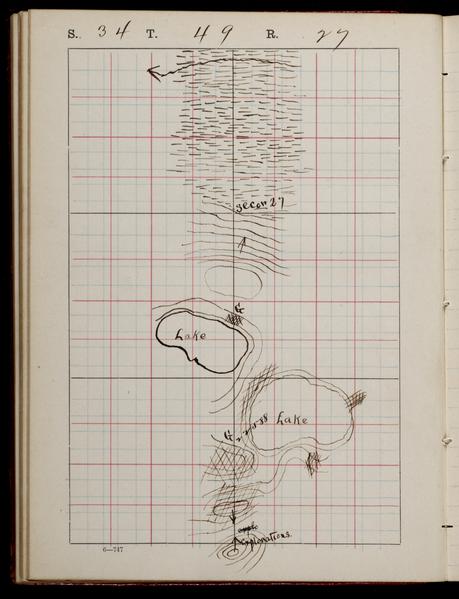 S. 34 T. 49 R. 27
sec on 27
G
Lake
Lake
G
Explorations.
6—747